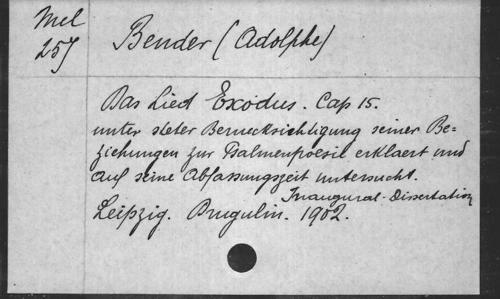 Mel
257
Bender (Adolphe)
Das Lied Exodus. Cap 15.
unter steter Beruecksichtigung seiner Be=
ziehungen zur Psalmenpoesie erklaert und
auf seine Abfassungszeit untersucht.
Inaugural-Dissertation
Leipzig. Drugulin. 1902.